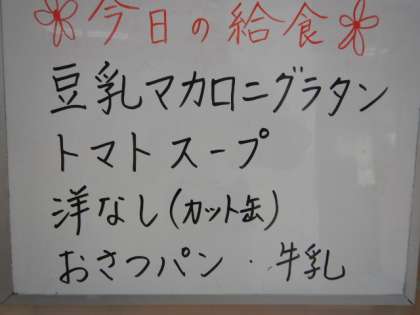 今日の給食
豆乳マカロニグラタン
トマトスープ
洋なし(カット缶)
おさつパン・牛乳